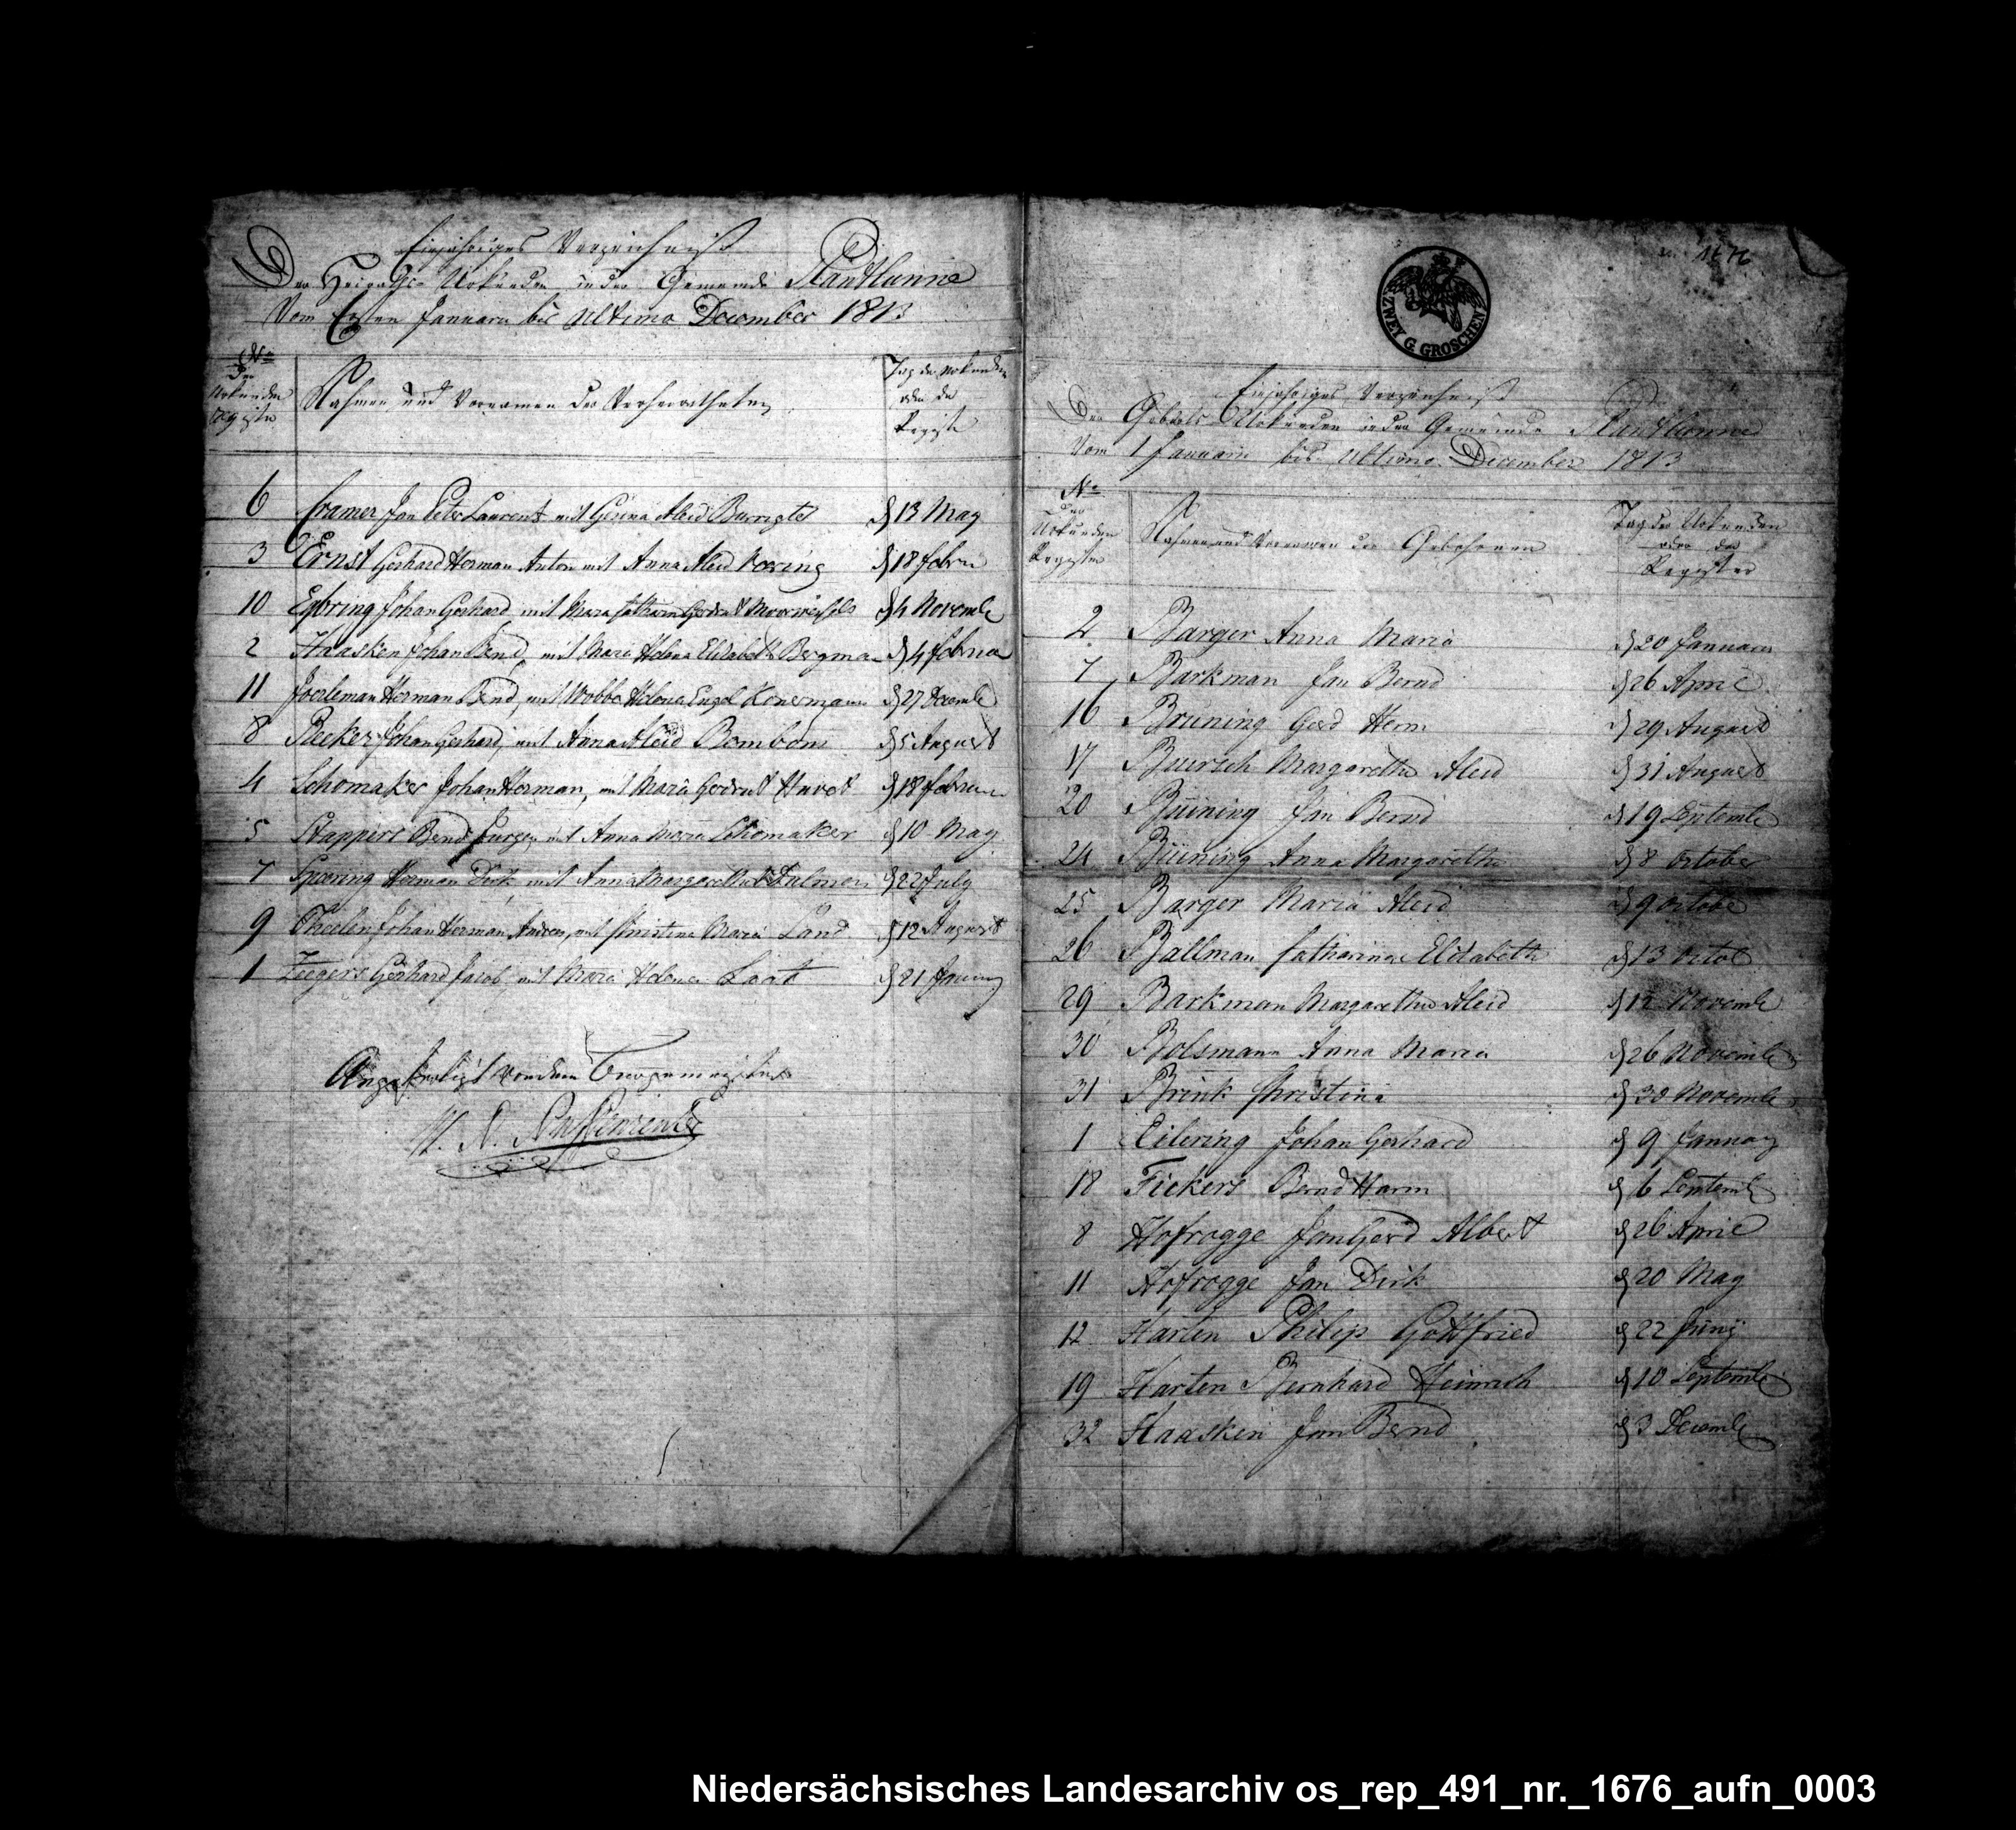 Einjähriges Verzeichniß
Der Heiraths-Urkunden in der Gemeinde Plantlünne
Vom Ersten Januaris bis Ultimo December 1813
No
Der
Urkunden
Register
Nahmen und Vornamen der Verheiratheten
Tag der Urkunden
oder der
Register
6 Cramer Jan Peter Laurentz mit Gesina Aleid d 13 May
3 Ernst Gerhard Herman Anton mit Anna Aleid d 18 febru
10 Johan Gerhard mit Maria Catharin Gerdrut d 4 Novemb
2 Haasken Johan Bend, mit Maria Helena Elisabeth Bergman d 4 februa
11 Herman Bend, mit Wobbe Helena Engel d 27 Decemb
8 Reeker Johan Gerhard, mit Anna Aleid d 5 August
4 Schomaker Johan Herman, mit Maria Gerdrut d 18 februa
5 Stappers Bend Jurgen mit Anna Maria Schomaker d 10 May
7 Spiering Herman Dirk mit Anna Margaretha d 22 July
9 Theelen Johan Herman Andreas, mit Christina Maria Land d 12 August
1 Zeegers Gerhard Jacob, mit Maria Helena d 21 January
Angefertigt von dem
1676
ZWEY G. GROSCHEN
Einjähriges Verzeichniß
Der Geburts Urkunden in der Gemeinde Plantlünne
Vom 1 Januaris bis Ultimo December 1813
No
Der
Urkunden
Register
Nahmen und Vornamen der Gebohrenen
Tag der Urkunden
oder der
Register
2 Barger Anna Maria d 20 Januaris
7 Barkman Jan Bernd d 26 April
16 Bruning Gerd Herm d 29 August
17 Buersch Margaretha Aleid d 31 August
20 Büining Jan Bernd d 19 Septemb
24 Büining Anna Margaretha d 8 October
25 Barger Maria Aleid d 9 Octobe
26 Ballman Catharina Elisabeth d 13 Octob
29 Barkman Margaretha Aleid d 12 Novemb
30 Bolsmann Anna Maria d 26 Novemb
31 Brink Christina d 30 Novemb
1 Eilering Johan Gerhard d 9 January
18 Fickers Bernd Harm d 6 Septemb
8 Hofrogge Jan Gerd Albert d 26 April
11 Hofrogge Jan Dirk d 20 May
12 Harten Philip Gottfried d 22 Junij
19 Harten Bernhard Heinrich d 10 Septemb
32 Haasken Jan Bernd d 3 Decemb
Niedersächsisches Landesarchiv os_rep_491_nr._1676_aufn_0003